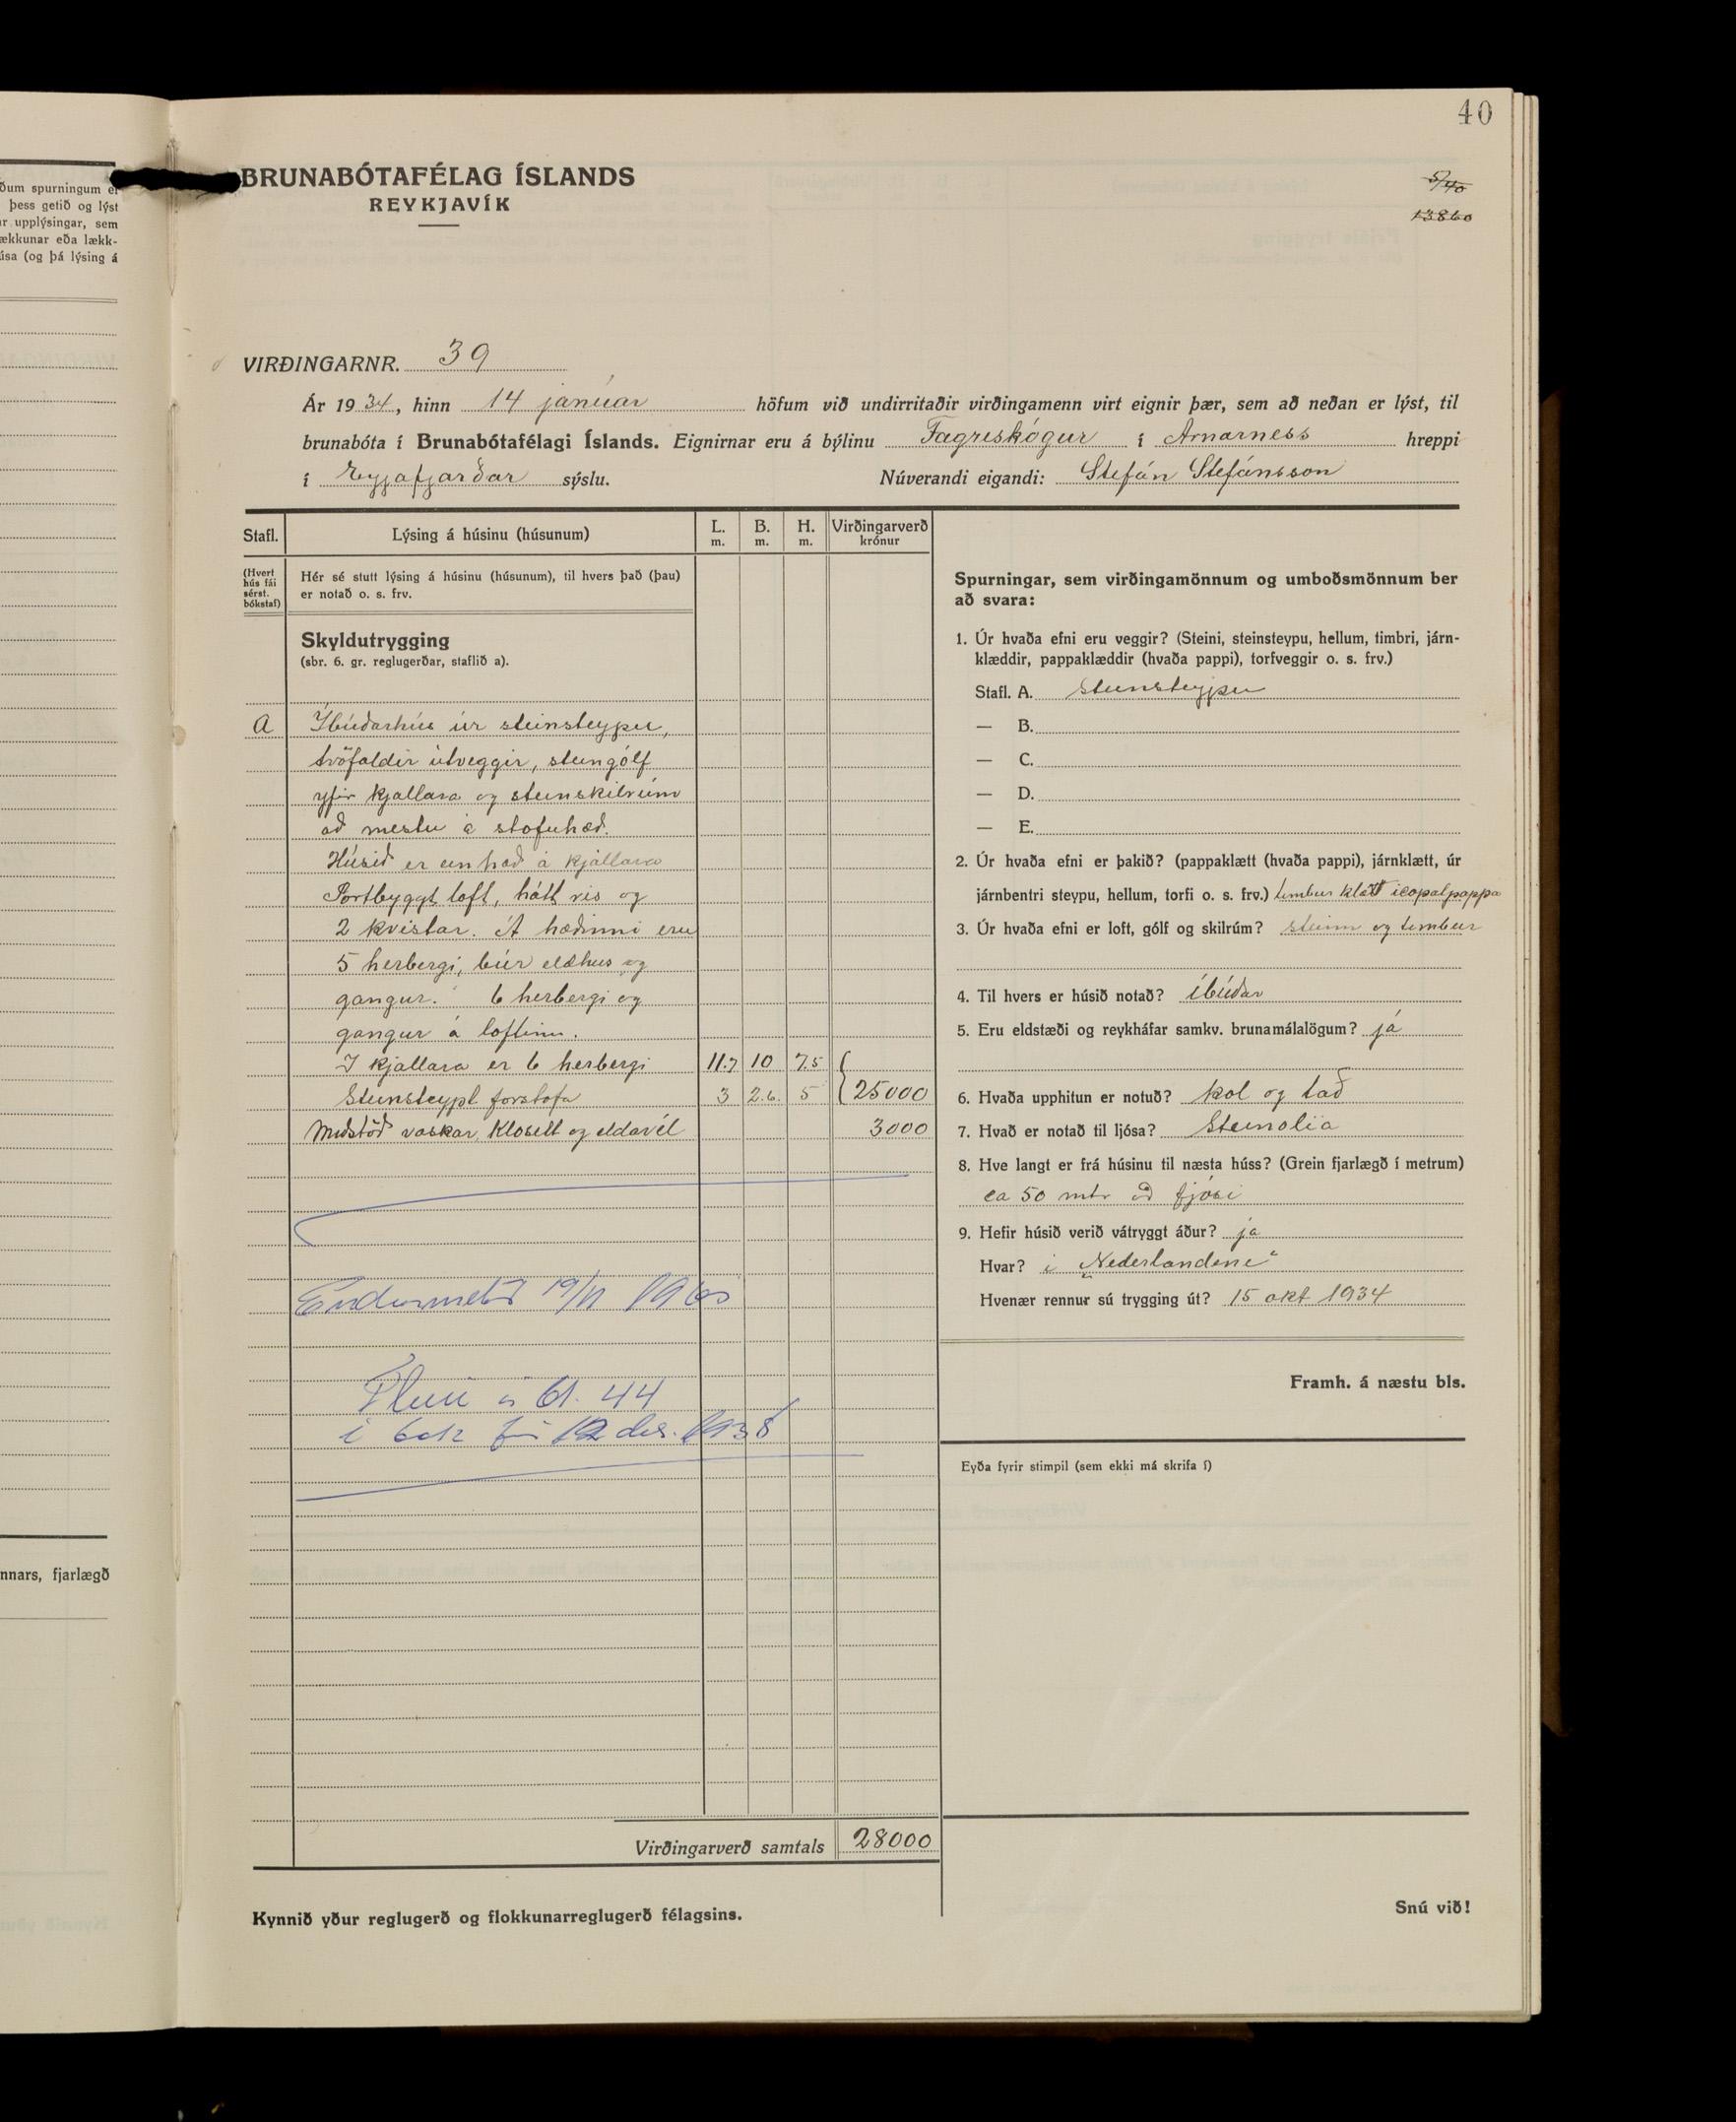 40
5/40
13860
BRUNABÓTAFÉLAG ÍSLANDS
REYKJAVÍK
ðum spurningum er
þess getið og lýst
ar upplýsingar, sem
ækkunar eða lækk-
úsa (og þá lýsing á
nnars, fjarlægð
VIRÐINGARNR. 39
Ár 1934, hinn 14 janúar höfum við undirritaðir virðingamenn virt eignir þær, sem að neðan er lýst, til
brunabóta í Brunabótafélagi Íslands. Eignirnar eru á býlinu Fagriskógur í Arnarness hreppi
í Eyjafjarðar sýslu. Núverandi eigandi: Stefán Stefánsson
Stafl. Lýsing á húsinu (húsunum) L. m. B. m. H. m. Virðingarverð krónur
(Hvert hús fái sérst. bókstaf)
Hér sé stutt lýsing á húsinu (húsunum), til hvers það (þau)
er notað o. s. frv.
Skyldutrygging
(sbr. 6. gr. reglugerðar, staflið a).
A Íbúðarhús úr steinsteypu,
tvöfaldir útveggir, steingólf
yfir kjallara og steinskilrúm
að mestu á stofuhæð.
Húsið er ein hæð á kjallara
Portbyggt loft, hátt ris og
2 kvistar. Á hæðinni eru
5 herbergi, búr eldhus og
gangur. 6 herbergi og
gangur á loftinu.
Í kjallara er 6 herbergi 11.7 10 7.5
Steinsteypt forstofa 3 2.6. 5 25000
Miðstöð vaskar, Klosett og eldavél 3000
Endurmetið 19/11 1960
Fleiri á bl. 44
í bók frá 12 des. 1938
Virðingarverð samtals 28000
Kynnið yður reglugerð og flokkunarreglugerð félagsins.
Spurningar, sem virðingamönnum og umboðsmönnum ber
að svara:
1. Úr hvaða efni eru veggir? (Steini, steinsteypu, hellum, timbri, járn-
klæddir, pappaklæddir (hvaða pappi), torfveggir o. s. frv.)
Stafl. A. Steinsteypu
— B.
— C.
— D.
— E.
2. Úr hvaða efni er þakið? (pappaklætt (hvaða pappi), járnklætt, úr
járnbentri steypu, hellum, torfi o. s. frv.) timbur klætt icopalpappa
3. Úr hvaða efni er loft, gólf og skilrúm? steinn og timbur
4. Til hvers er húsið notað? íbúðar
5. Eru eldstæði og reykháfar samkv. brunamálalögum? já
6. Hvaða upphitun er notuð? kol og tað
7. Hvað er notað til ljósa? Steinolía
8. Hve langt er frá húsinu til næsta húss? (Grein fjarlægð í metrum)
ca 50 mtr að fjósi
9. Hefir húsið verið vátryggt áður? já
Hvar? í „Nederlandene“
Hvenær rennur sú trygging út? 15 okt 1934
Framh. á næstu bls.
Eyða fyrir stimpil (sem ekki má skrifa í)
Snú við!